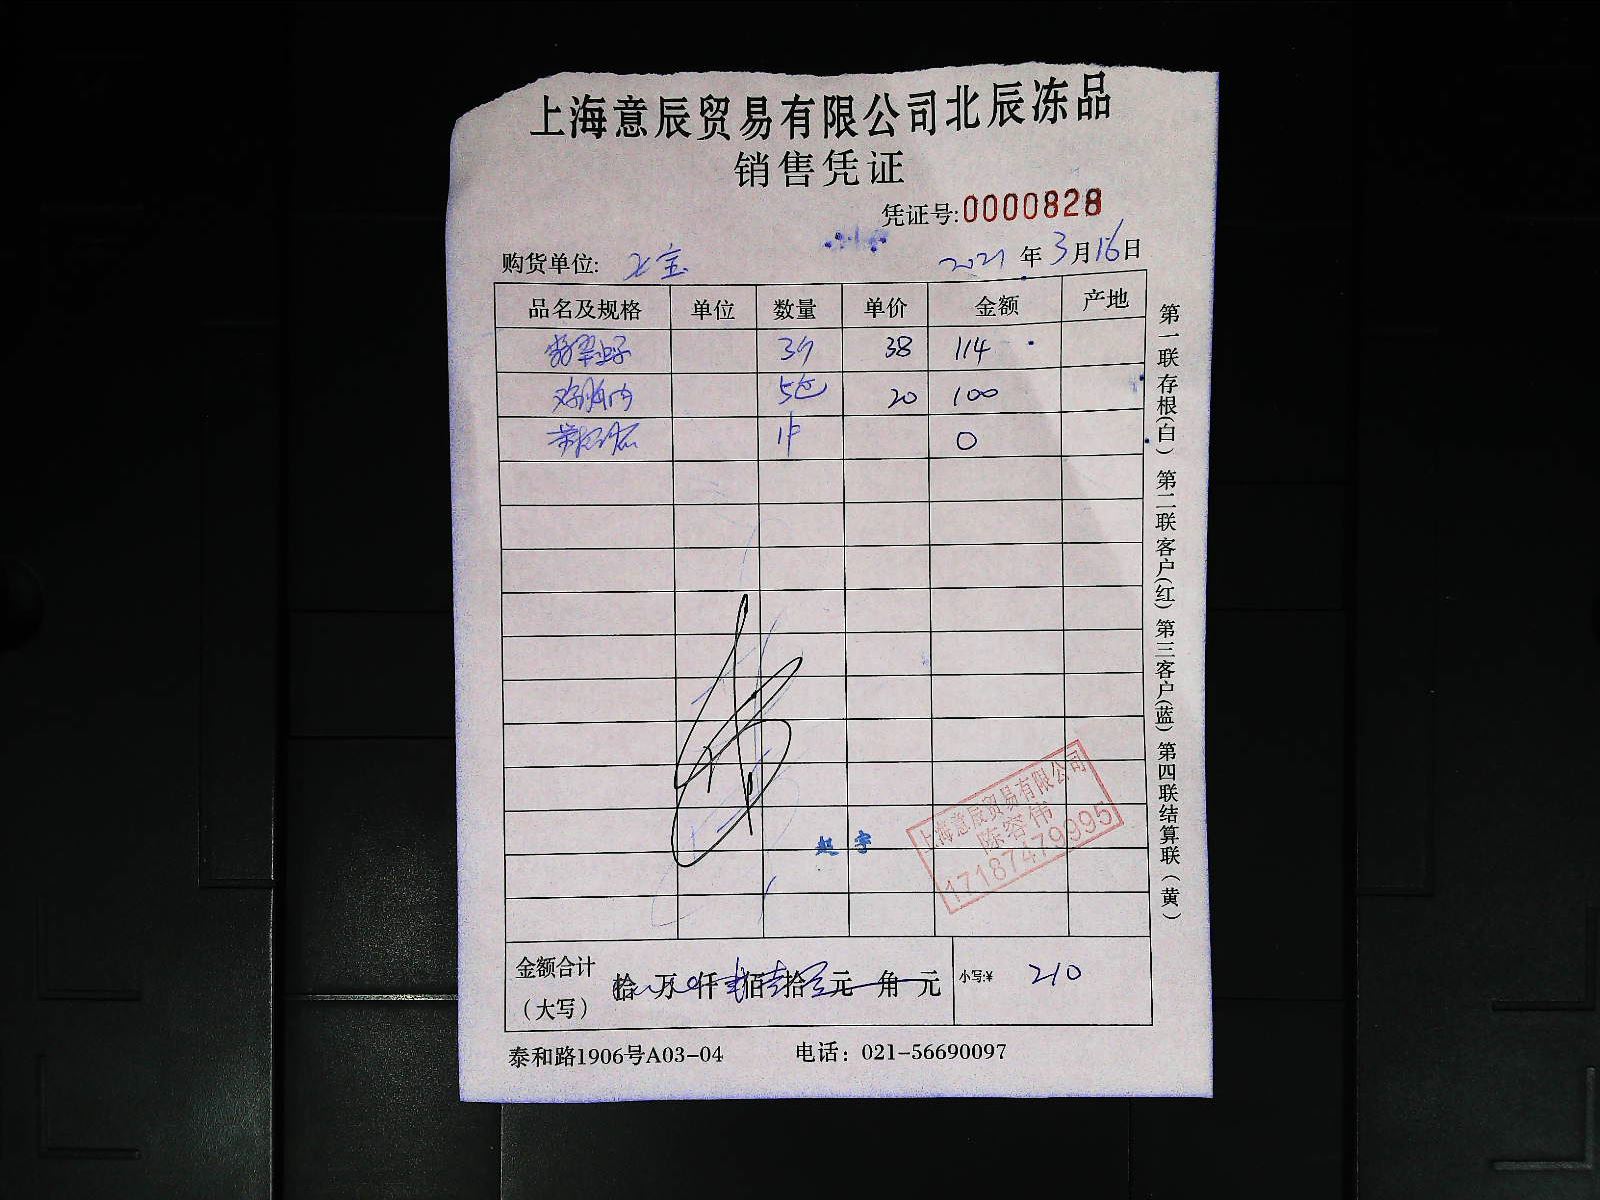 上海意辰贸易有限公司北辰冻品
销售凭证
凭证号:0000828
购货单位: 七宝 2021 年 3 月 16 日
品名及规格 单位 数量 单价 金额 产地
38 114
5包 20 100
0
上海意辰贸易有限公司
陈容伟
17187479995
赵宇
金额合计
(大写)
拾 万 仟 佰 拾 元 角 元 小写:¥ 210
泰和路1906号A03-04 电话：021-56690097
第一联存根(白) 第二联客户(红) 第三客户(蓝) 第四联结算联(黄)